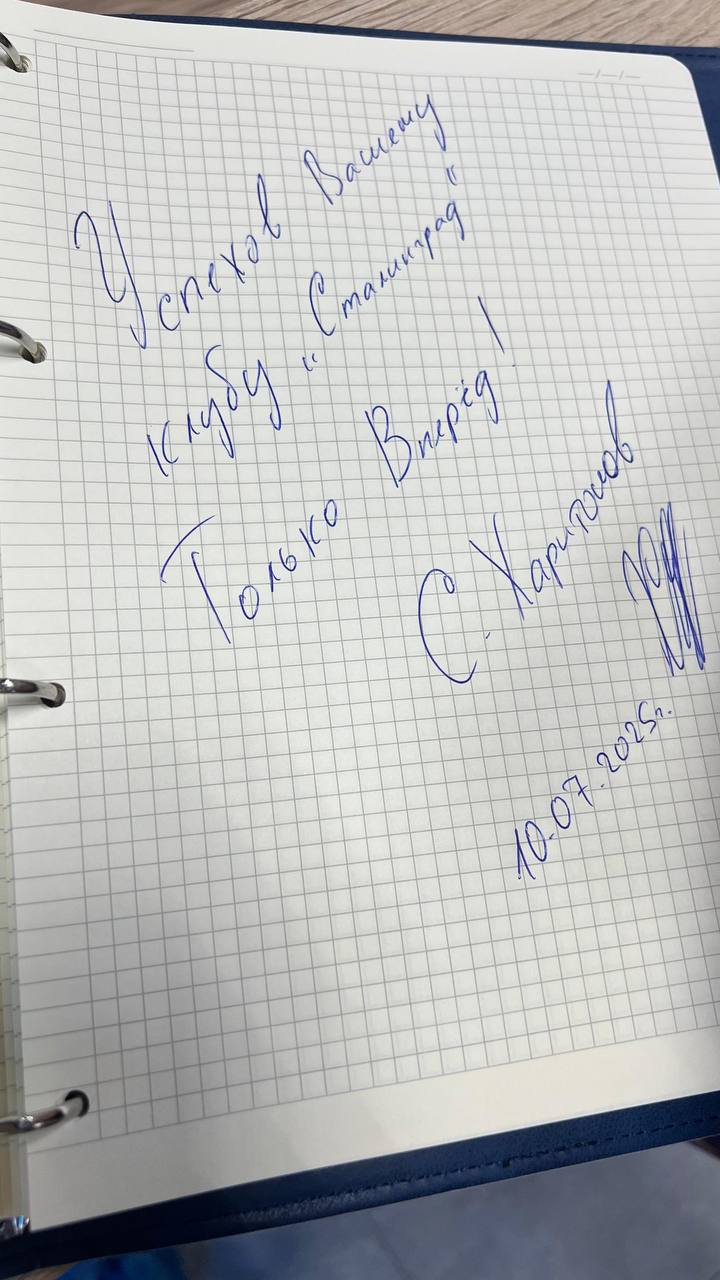 Успехов Вашему
клубу "Сталинград"
Только Вперёд!
С. Харитонов
10.07.2025г.